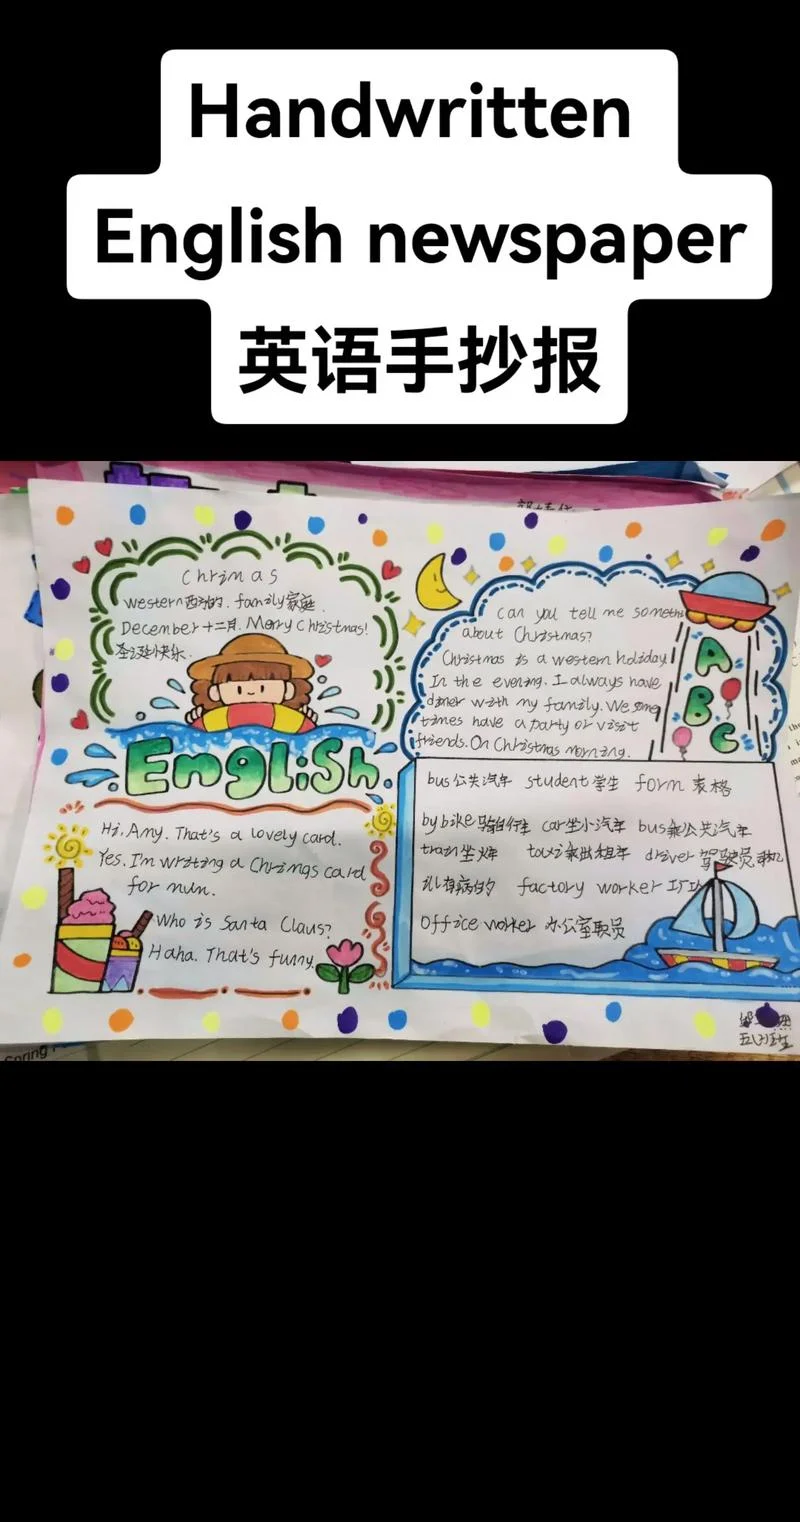 Handwritten
English newspaper
英语手抄报
Chrimas
western西方的. family家庭.
December十二月. Merry Christmas!
圣诞快乐.
EngLiSh
Hi, Amy. That's a lovely card.
Yes. I'm writing a Chrings card
for mun.
Who is Santa Claus?
Haha. That's funny.
Can you tell me someth
about Christmas?
Christmas is a western holiday.
In the evering. I always have
diner with my family. We some
times have a party or visit
friends. On Christmas morning.
A
B
C
bus公共汽车 student学生 form 表格
by bike 骑自行车 car坐小汽车 bus乘公共汽车
train坐火车 taxi乘出租车 driver 驾驶员司机
ill有病的 factory worker 工厂
Office worker 办公室职员
Spring